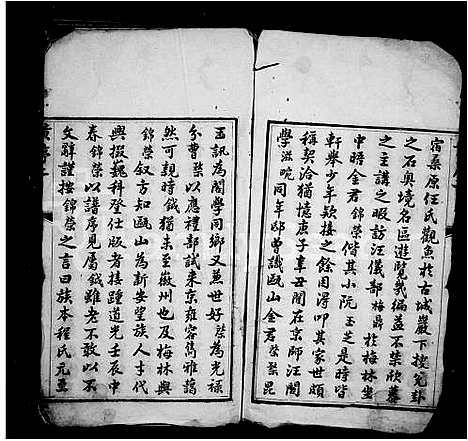 宿桑原任氏觀魚於古城巖下搜完卦
之石奧境名區遊覽幾徧益不禁欣慕
之主講之暇訪汪儀部梅鼎於梅林坐
中晤金君錦榮偕其小阮玉芝是時皆
軒舉少年欵接之餘因得叩其家世頗
稱契洽猶憶庚子辛丑間在京師汪閣
學滋畹同年邸曾識甌山金君榮槃昆
玉訊為閣學同鄉又兼世好槃為光祿
分曹槃以應禮部試來京雍容雋雅藹
然可親時鉞猶未至徽州也及梅林與
錦榮叙方知甌山為新安望族人才代
興掇巍科登仕版者接踵道光壬辰中
春錦榮以譜序見屬鉞雖老不敢以不
文辭謹按錦榮之言曰族本程氏元至